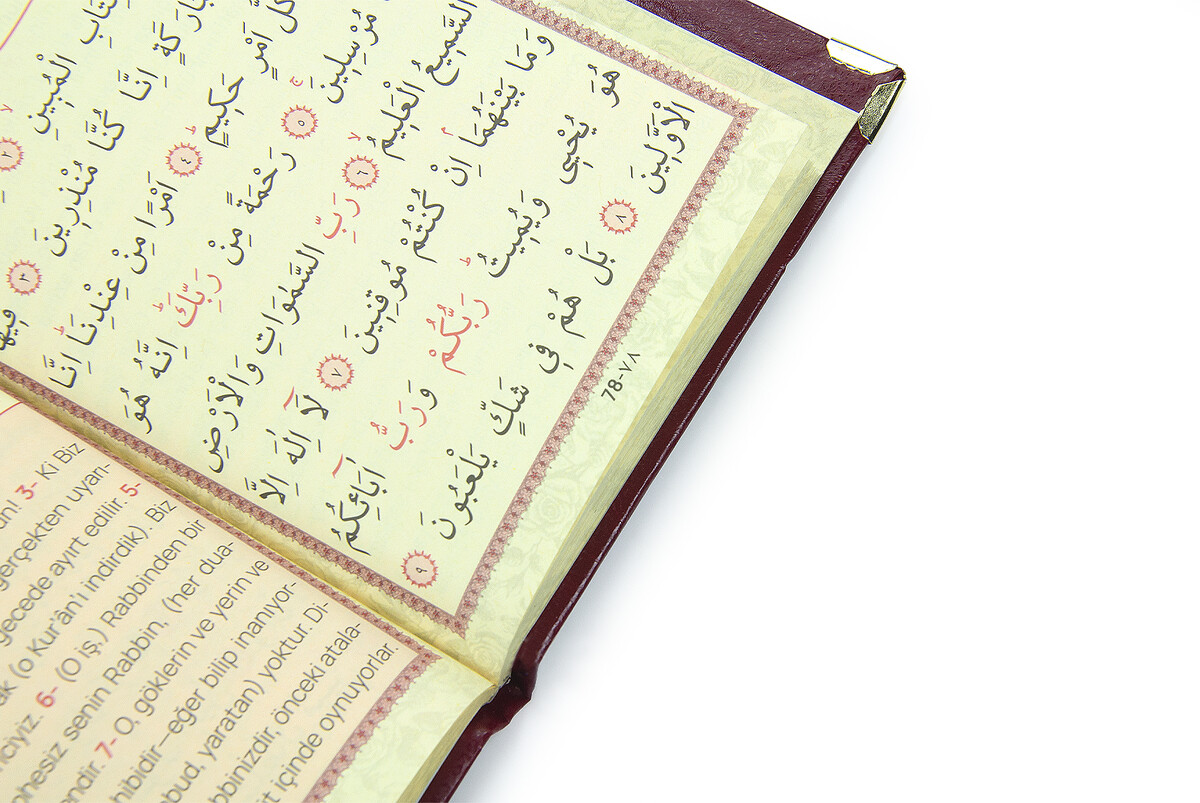 الْمُبِينِ ٢
اِنَّا كُنَّا مُنْذِرِينَ ٣ فِيهَا
كُلُّ اَمْرٍ حَكِيمٍ ٤ اَمْرًا مِنْ عِنْدِنَا اِنَّا
مُرْسِلِينَ ٥ رَحْمَةً مِنْ رَبِّكَ اِنَّهُ هُوَ
السَّمِيعُ الْعَلِيمُ ٦ رَبِّ السَّمٰوَاتِ وَالْاَرْضِ
وَمَا بَيْنَهُمَا اِنْ كُنْتُمْ مُوقِنِينَ ٧ لَا اِلٰهَ اِلَّا
هُوَ يُحْيِي وَيُمِيتُ رَبُّكُمْ وَرَبُّ اٰبَائِكُمُ
الْاَوَّلِينَ ٨ بَلْ هُمْ فِي شَكٍّ يَلْعَبُونَ ٩
78-٧٨
3- Ki Biz
gerçekten uyarı-
gecede ayırt edilir. 5-
(o Kur'ân'ı indirdik). Biz
6- (O iş.) Rabbinden bir
senin Rabbin, (her dua-
7- O, göklerin ve yerin ve
hibidir—eğer bilip inanıyor-
yaratan) yoktur. Di-
bbinizdir, önceki atala-
içinde oynuyorlar.